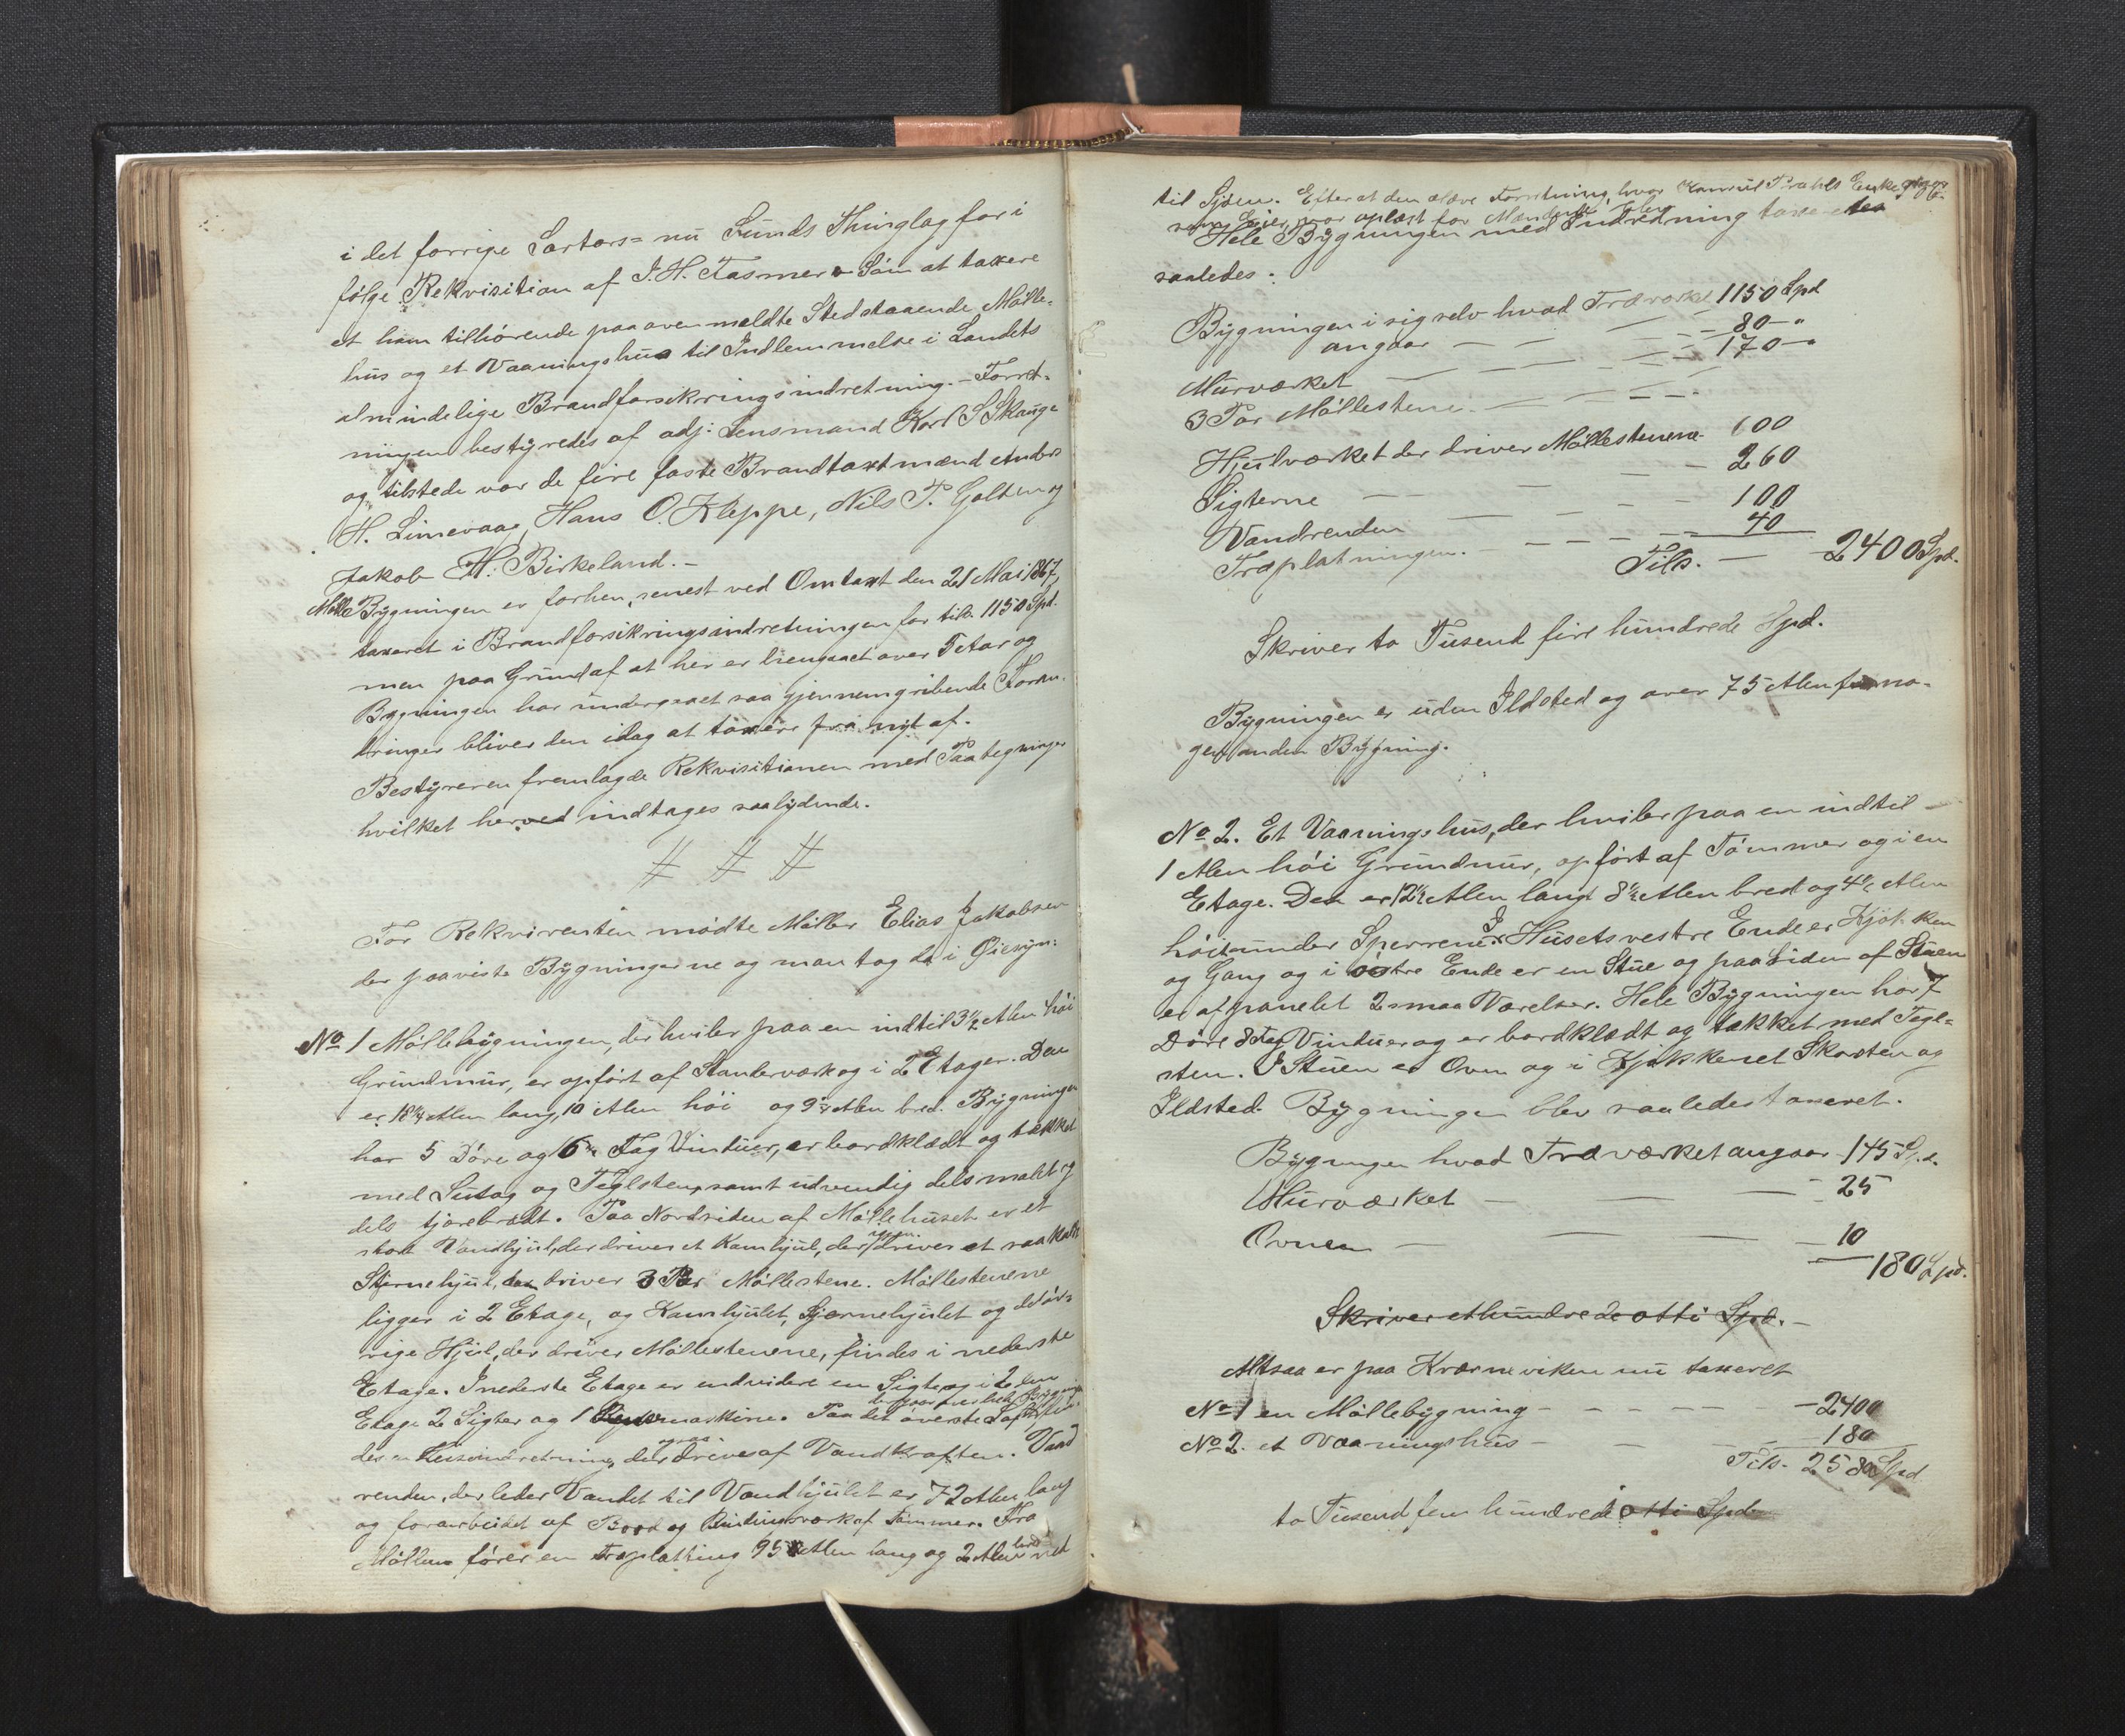 i det forrige Sartors= nu Sunds Thinglag for i
følge Rekvisition af J. H. Fasmer & Søn at taxere
et ham tilhørende paa ovenmeldte Sted staaende Mølle-
hus og et Vaaningshus til Indlemmelse i Landets
almindelige Brandforsikringsindretning. - Forret-
ningen bestyredes af adj: Lensmand Karl S. Skauge
og tilstede var de fire faste Brandtaxtmænd Anders
H. Limevaag, Hans O. Kleppe, Nils T. Golten og
Jakob H. Birkeland. -
Mølle Bygningen er forhen, senest ved Omtaxt den 21 Mai 1867,
taxeret i Brandforsikringsindretningen for tils. 1150 Spd.
men paa Grund af at her er hengaaet over 5 Aar og
Bygningen har undergaaet saa gjennemgribende Foran-
dringer bliver den idag at taxere fra nyt af.
Bestyreren fremlagde Rekvisitionen med Paategninger
hvilket herved indtages saalydende.
# # #
For Rekvirenten mødte Møller Elias Jakobsen
der paaviste Bygningerne og man tog da i Øiesyn:
No 1 Møllebygningen, der hviler paa en indtil 3½ Alen høi
Grundmur, er opført af Standerværk og i 2 Etager. Den
er 18¼ Alen lang, 10 Alen høi og 9¾ Alen bred. Bygningen
har 5 Døre og 6 Fag Vinduer, er bordklædt og tækket
med Sutag og Teglsten, samt udvendig dels malet og
dels tjærebrædt. Paa Nordsiden af Møllehuset er et
stort Vandhjul, der driver et Kamhjul, der igjen driver et saa kaldt
Stjernehjul, der driver 3 Par Møllestene. Møllestenene
ligger i 2 Etage, og Kamhjulet, Stjernehjulet og det øv-
rige Hjul, der driver Møllestenene, findes i nederste
Etage. I nederste Etage er endvidere en Sigte og i 2 den
Etage 2 Sigter og 1 maskine. Paa det øverste Loft der gaar over hele Bygningen fin-
des en Heiseindretning, der ogsaa drives af Vandkraften. Vand
renden, der leder Vandet til Vandhjulet er 72 Alen lang
og forarbeidet af Bord og Bindingsværk af Tømmer. Fra
Møllen fører en Træplatting 95 Alen lang og 2 Alen bred ned
til Sjøen. Efter at den ældre Forretning, hvor Konsul Krahls Enke
som Eier, var oplæst for Mændene, blev
Hele Bygningen med Indredning taxeret
saaledes:
Bygningen i sig selv hvad Træværket 1150 Spd
angaar — — — 80 — "
Murværket — — — 170 — "
3 Par Møllestene — — —
Hjulværket der driver Møllestenene 600
Sigterne — — — 260
Vandrenden — — — 100
Træplatningen. — — — 40
Tils. — 2400 Spd.
Skriver to Tusend fire hundrede Spd.
Bygningen er uden Ildsted og over 75 Alen fra no-
gen anden Bygning.
No 2. Et Vaaningshus, der hviler paa en indtil
1 Alen høi Grundmur, opført af Tømmer og i en
Etage. Den er 12½ Alen langt 8½ Alen bred og 4½ Alen
høit under Sperrene. I Husets vestre Ende er Kjøkken
og Gang og i østre Ende er en Stue og paa Siden af Stuen
er afpanelet 2 smaa Værelser. Hele Bygningen har 7
Døre 8 Fag Vinduer og er bordklædt og tækket med Tegl-
sten. I Stuen er Ovn og i Kjøkkenet Skorsten og
Ildsted. Bygningen blev saaledes taxeret.
Bygningen hvad Træværket angaar - 145 Spd.
Murværket — — — 25
Ovnen — — — 10
180 Spd.
Skriver et hundrede otti Spd. -
Altsaa er paa Kværneviken nu taxeret
No 1 en Møllebygning - - - - 2400
No 2. et Vaaningshus - - - 180
Tils. 2580 Spd
to Tusend fem hundrede otti Spd